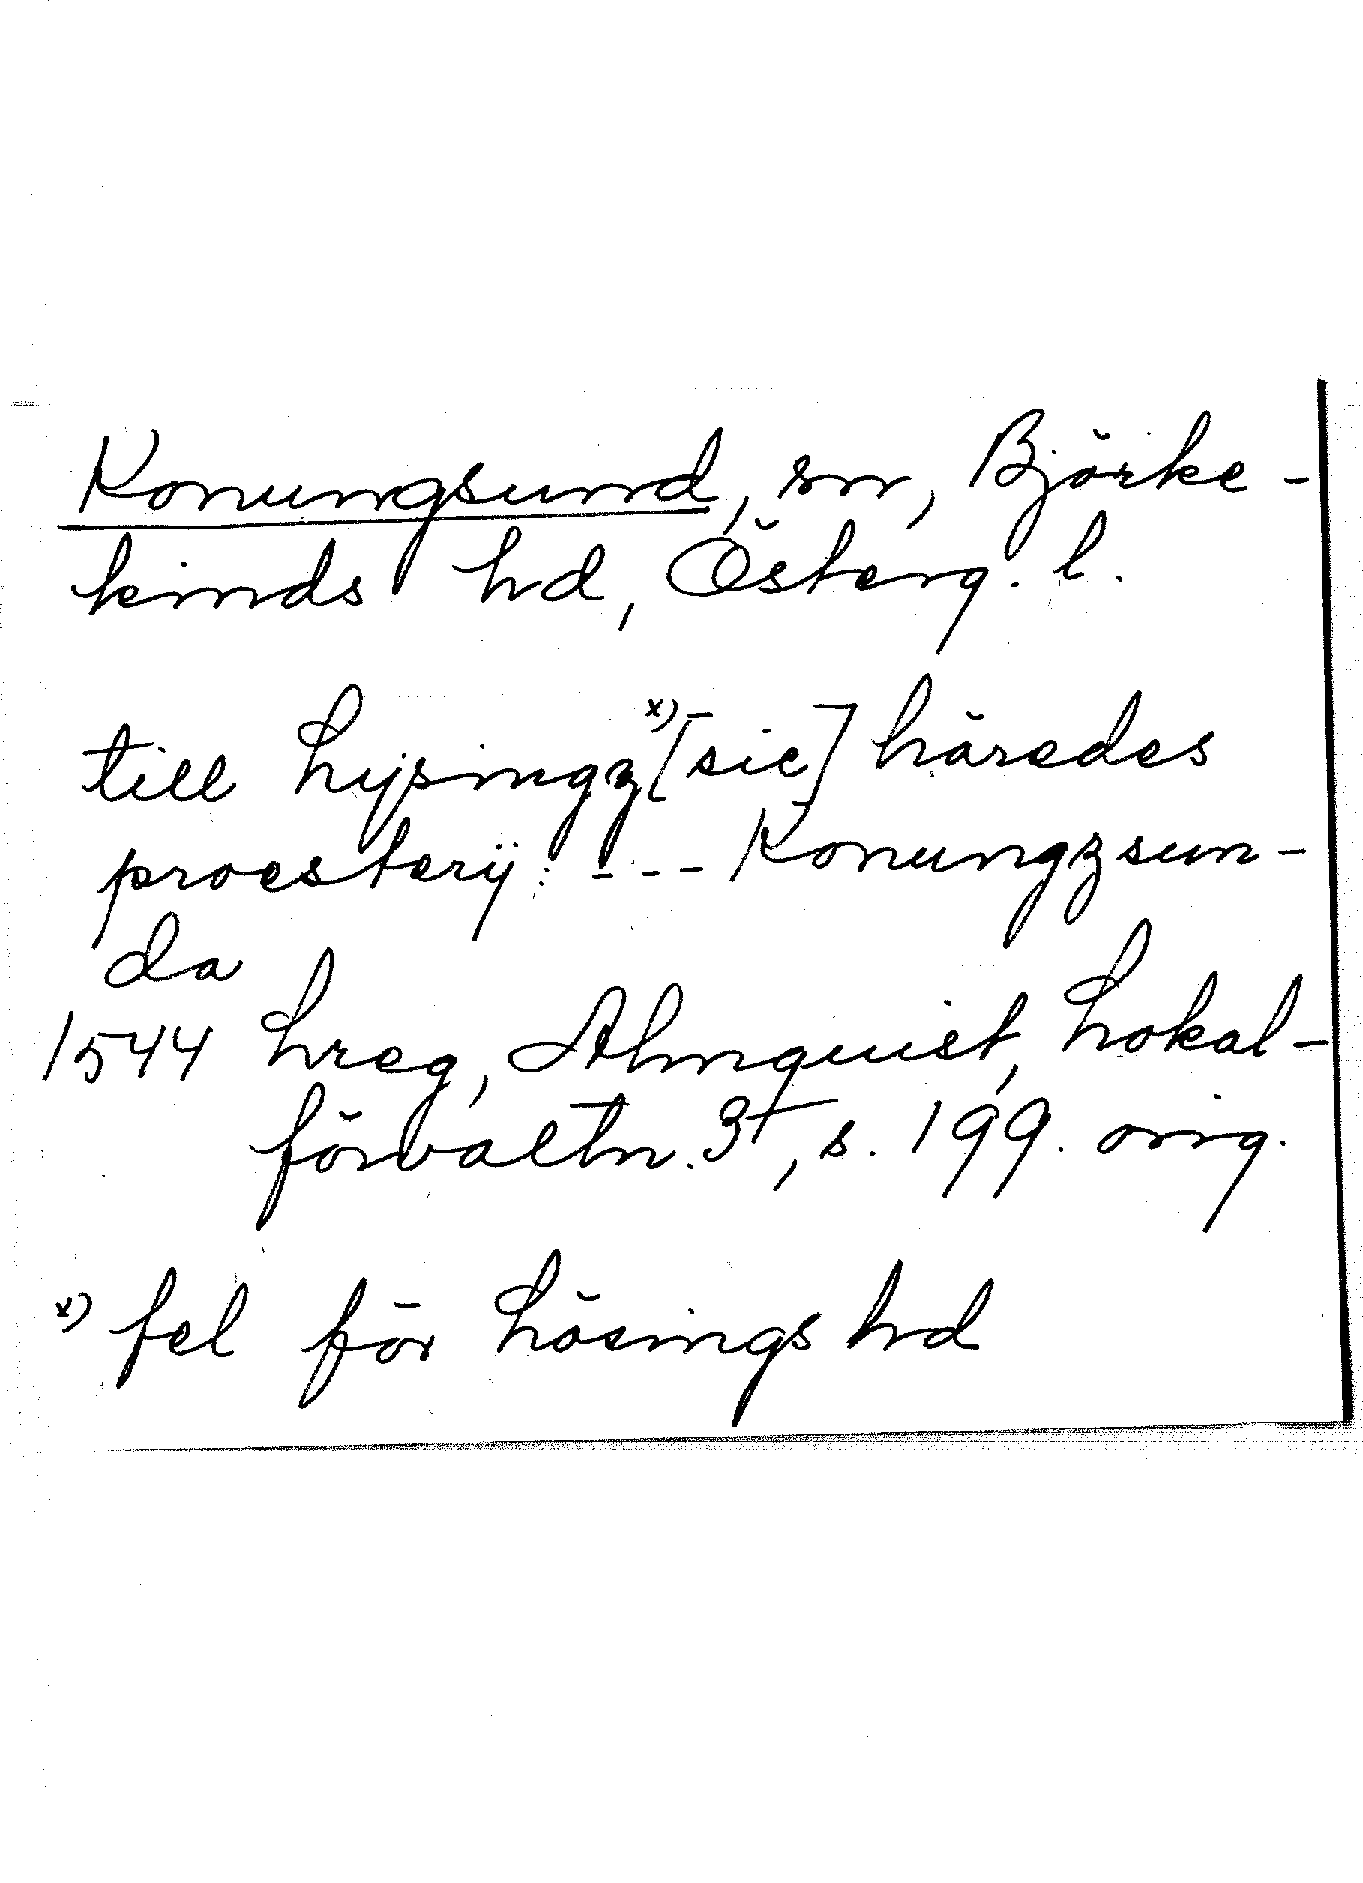 Konungsund, sn, Björke-
kinds hd, Österg. l.
till Lysingz x) [sic] häredes
proesterij: - - - Konungzsun-
da
1544 Lreg, Almquist, Lokal-
förvaltn. 3+, s. 199. orig.
x) fel för Lösings hd